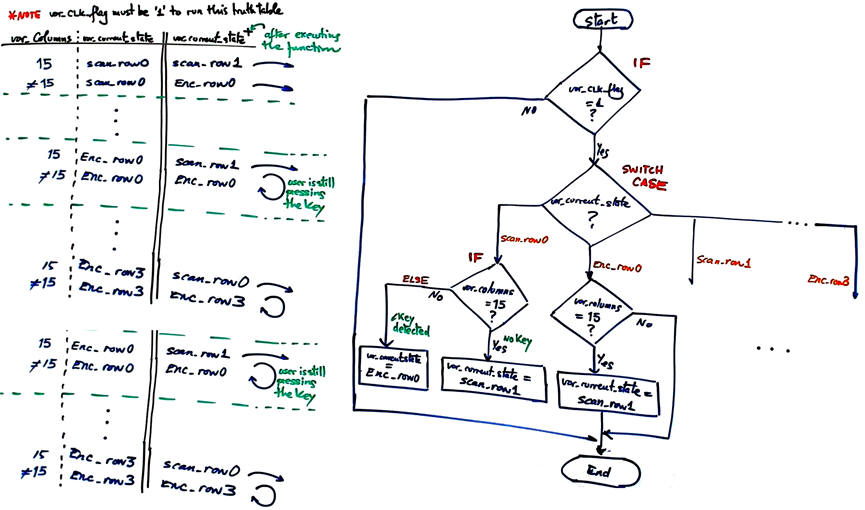 *NOTE var_CLK_flag must be '1' to run this truth table
var_Columns var_current_state var_current_state+ after executing
the function
15 scan_row0 scan_row1
≠15 scan_row0 Enc_row0
15 Enc_row0 scan_row1
≠15 Enc_row0 Enc_row0 user is still
pressing
the key
15 Enc_row3 scan_row0
≠15 Enc_row3 Enc_row3
15 Enc_row0 scan_row1
≠15 Enc_row0 Enc_row0 user is still
pressing
the key
15 Enc_row3 scan_row0
≠15 Enc_row3 Enc_row3
Start
IF
var_CLK_flag
=1
?
NO
Yes
SWITCH
CASE
var_current_state
?
scan_row0
Enc_row0
scan_row1
Enc_row3
IF
ELSE
No
var_columns
=15
?
Key
detected
Yes
No Key
var_current_state
=
Enc_row0
var_current_state =
scan_row1
var_columns
= 15
?
No
Yes
var_current_state =
scan_row1
End